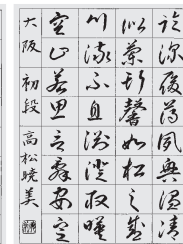 臨深履薄夙興温凊
似蘭斯馨如松之盛
川流不息淵澄取暎
容止若思言辭安定
大阪 初段 高松曉美